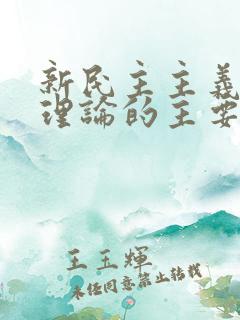 新民主主義
理論的主要
王玉輝
未經同意禁止轉載